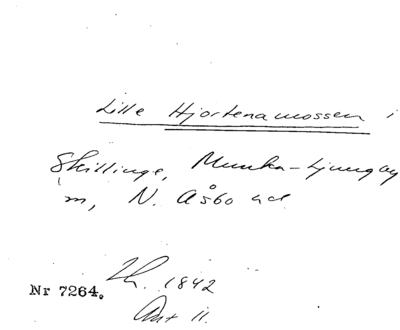 Lille Hjortenamossen i
Skillinge, Munka-Ljungby
sn, N. Åsbo hd
Nr 7264. 1842
Ant 11.